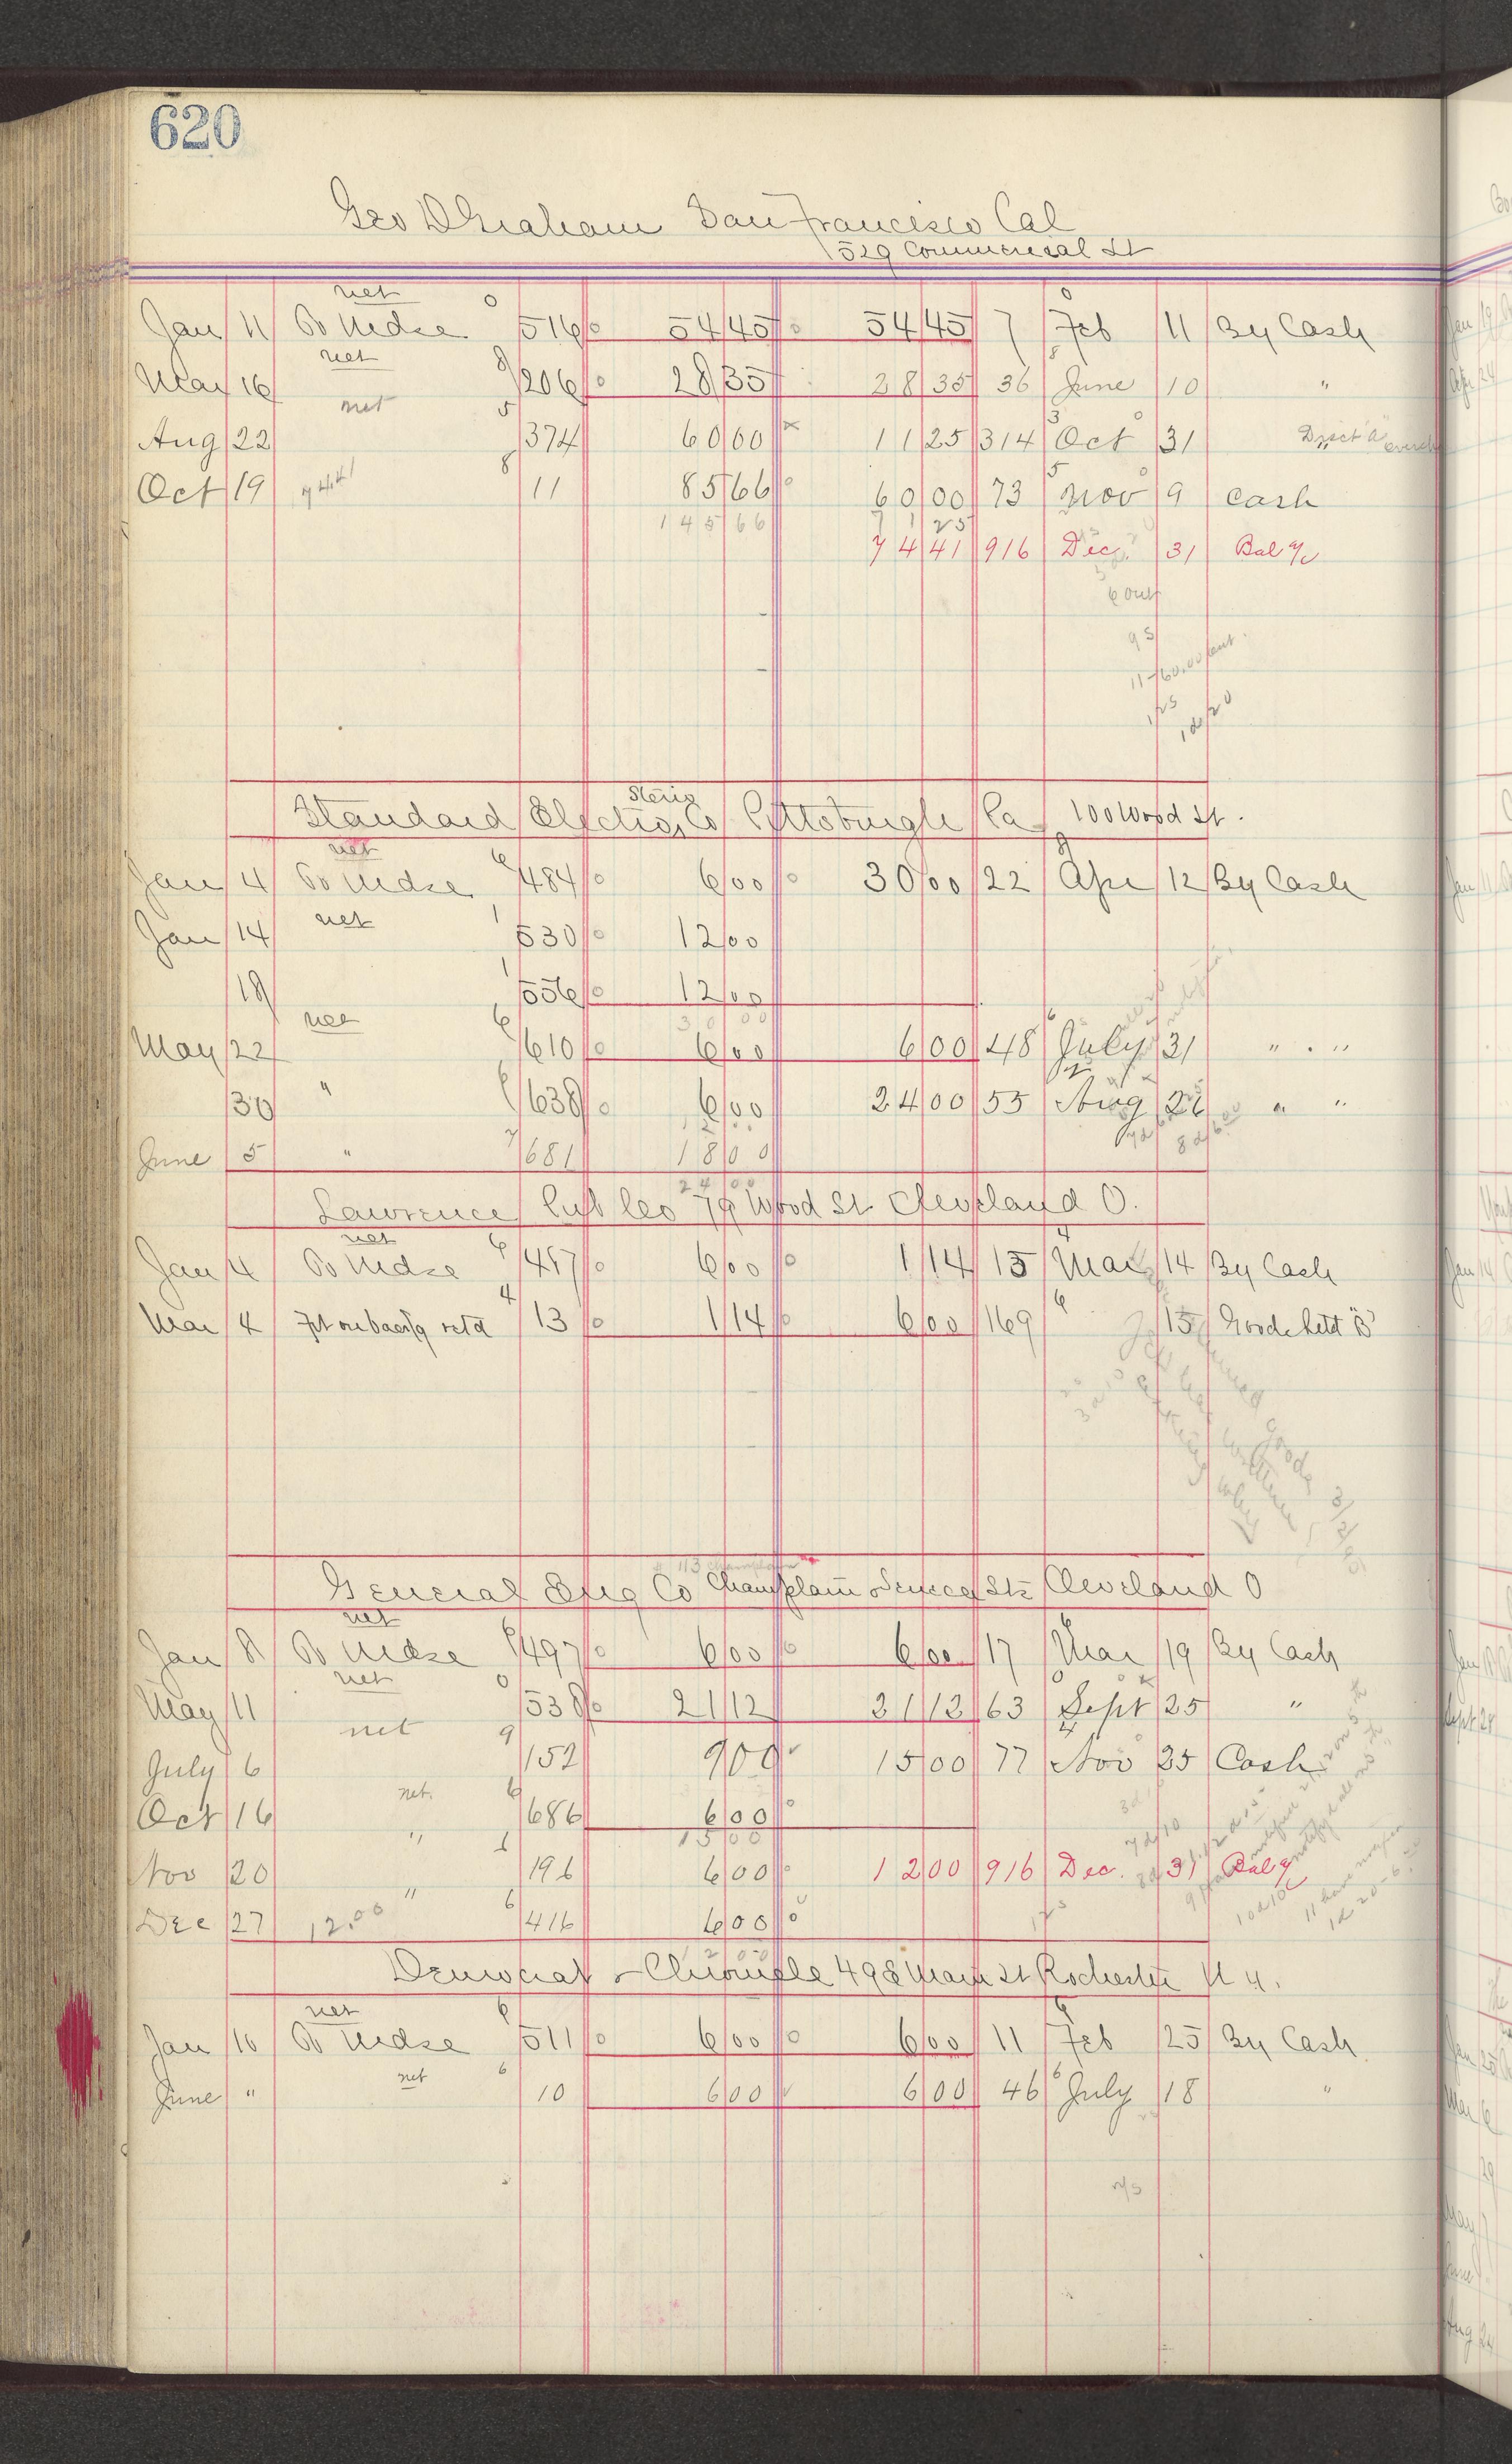 620
Geo D Graham San Francisco Cal
529 Commercial St
net
Jan 11 To Mdse 516 54 45 54 45 7 Feb 11 By Cash
net
May 16 206 28 35 28 35 36 June 10 "
net
Aug 22 374 60 00 11 25 314 Oct 31
Oct 19 74.41 11 85 66 60 00 73 Nov 9 Cash
145 66 71 25
74 41 916 Dec. 31 Bal
Standard Electric Co Pittsburgh Pa 100 Wood St.
net
Jan 4 To Mdse 484 6 00 30 00 22 Apr 12 By Cash
net
Jan 14 530 12 00
18 556 12 00
30 00
net
May 22 610 6 00 6 00 48 July 31 " "
30 " 638 6 00 24 00 55 Aug " "
June 5 " 681 18 00
24 00
Lawrence Pub Co 79 Wood St Cleveland O.
net
Jan 4 To Mdse 487 6 00 1 14 15 Mar 14 By Cash
Mar 4 retd 13 1 14 6 00 169 15 Goods "B"
General Eng Co Champlain Seneca Sts Cleveland O
net
Jan 8 To Mdse 497 6 00 6 00 17 Mar 19 By Cash
net
May 11 538 21 12 21 12 63 Sept 25 "
net
July 6 152 9 00 15 00 77 Nov 25 Cash
net
Oct 16 686 6 00
15 00
Nov 20 " 196 6 00 12 00 916 Dec. 31 Bal
Dec 27 12.00 " 416 6 00
12 00
Democrat & Chronicle Main St Rochester N Y.
net
Jan 10 To Mdse 511 6 00 6 00 11 Feb 25 By Cash
net
June " 10 6 00 6 00 46 July 18 "